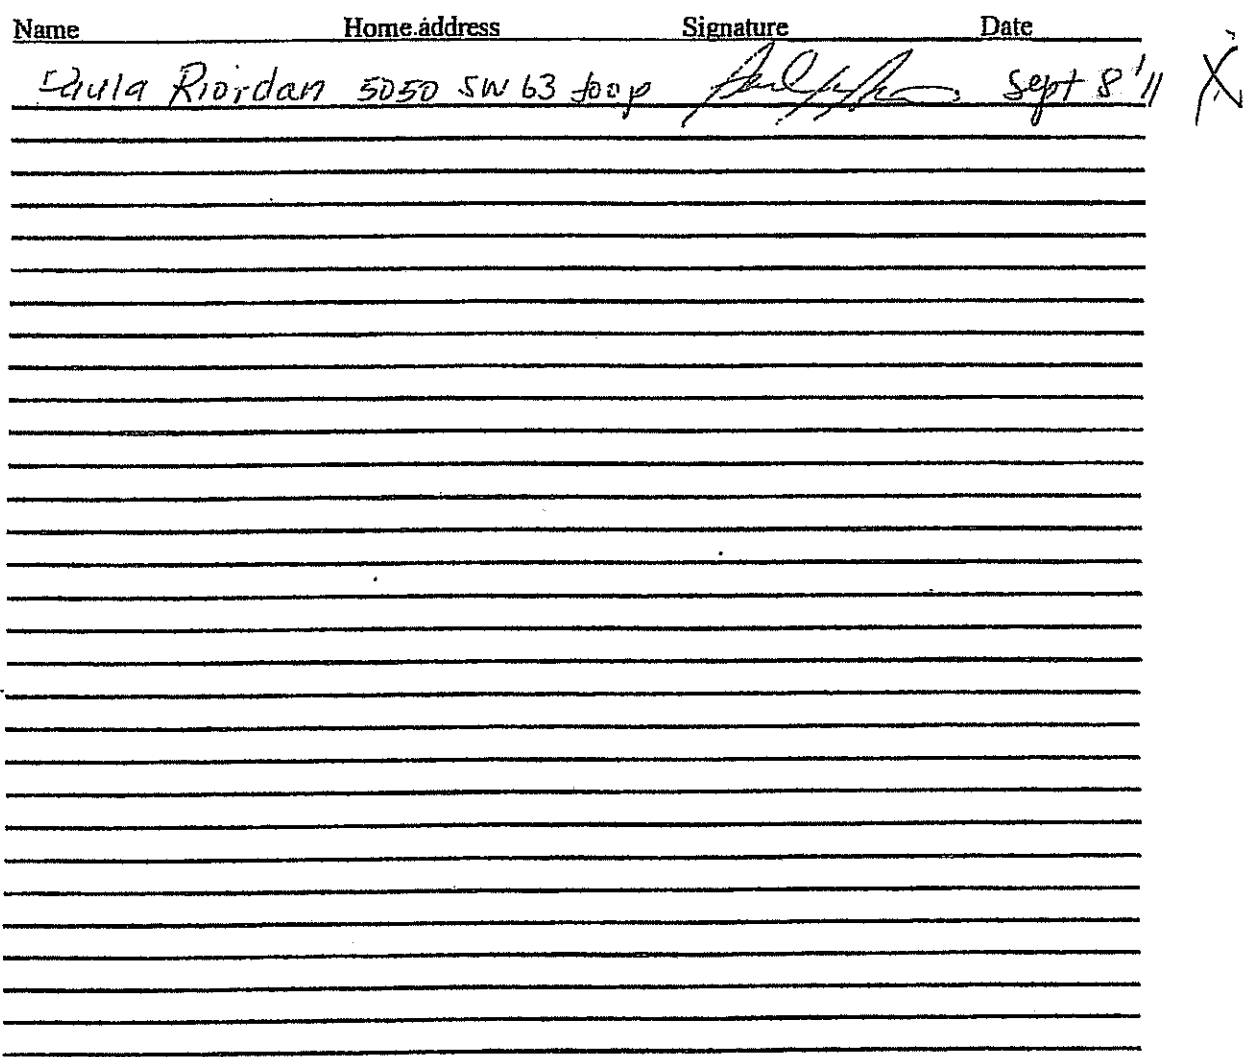 Name Home address Signature Date
Paula Riordan 5050 SW 63 loop Sept 8 '11 X